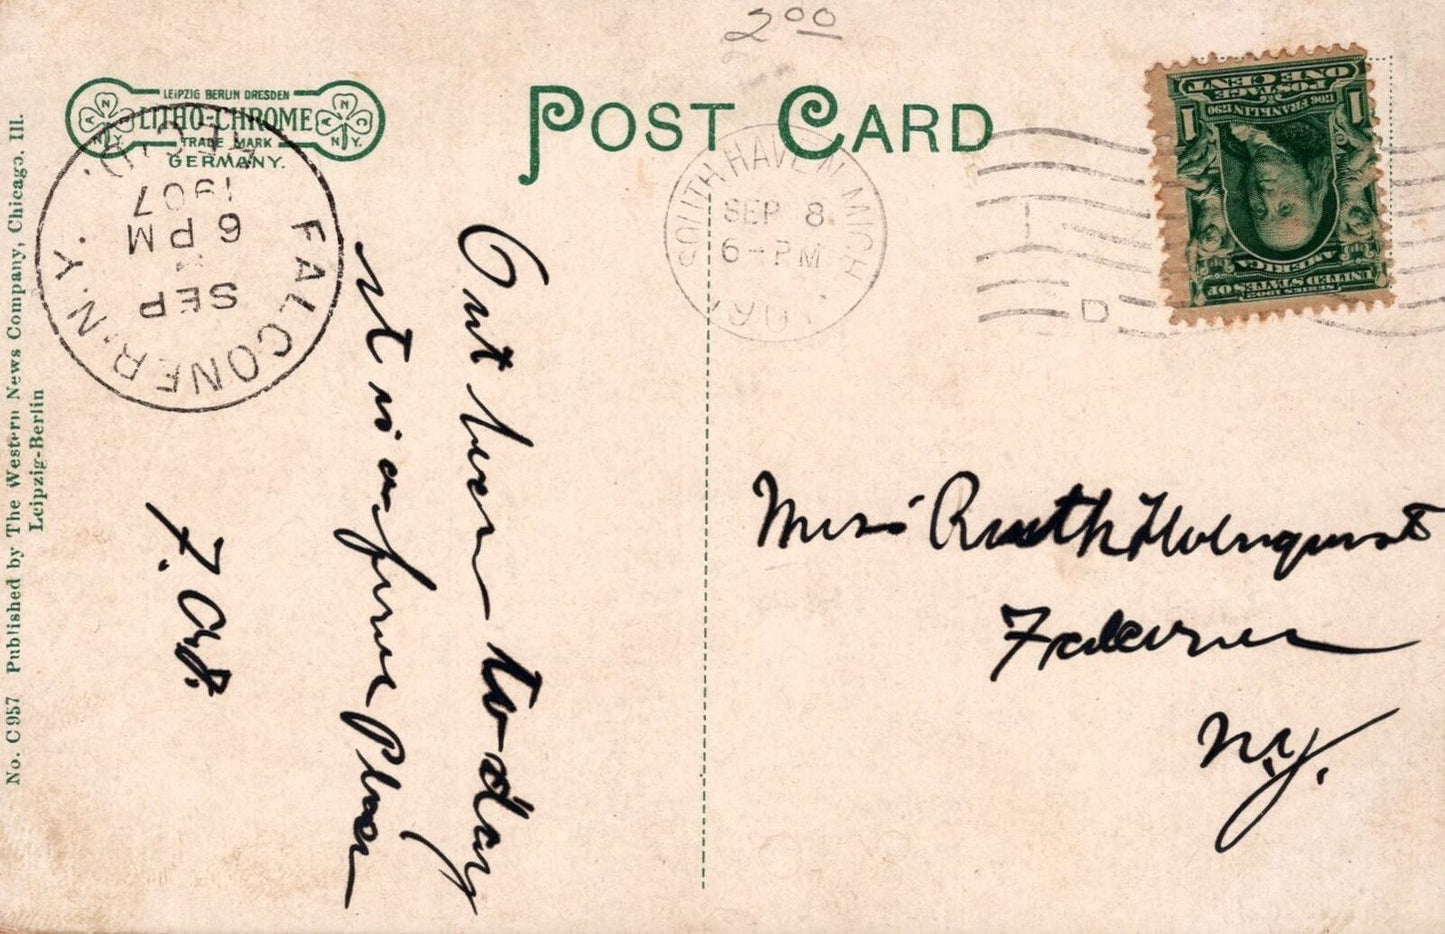 2 00
LEIPZIG BERLIN DRESDEN
LITHO-CHROME
TRADE MARK
GERMANY.
POST CARD
FALCONER, N.Y.
SEP
6 PM
1907
REC'D.
SOUTH HAVEN MICH
SEP 8
6-PM
1907
D
SERIES 1902
UNITED STATES OF
AMERICA
1706 FRANKLIN 1790
1 1
POSTAGE
ONE CENT
Out here to-day
it is a fine place
F. Od.
Miss Ruth Holmquist
Falconer
N.Y.
No. C 957 Published by The Western News Company, Chicago, Ill.
Leipzig-Berlin